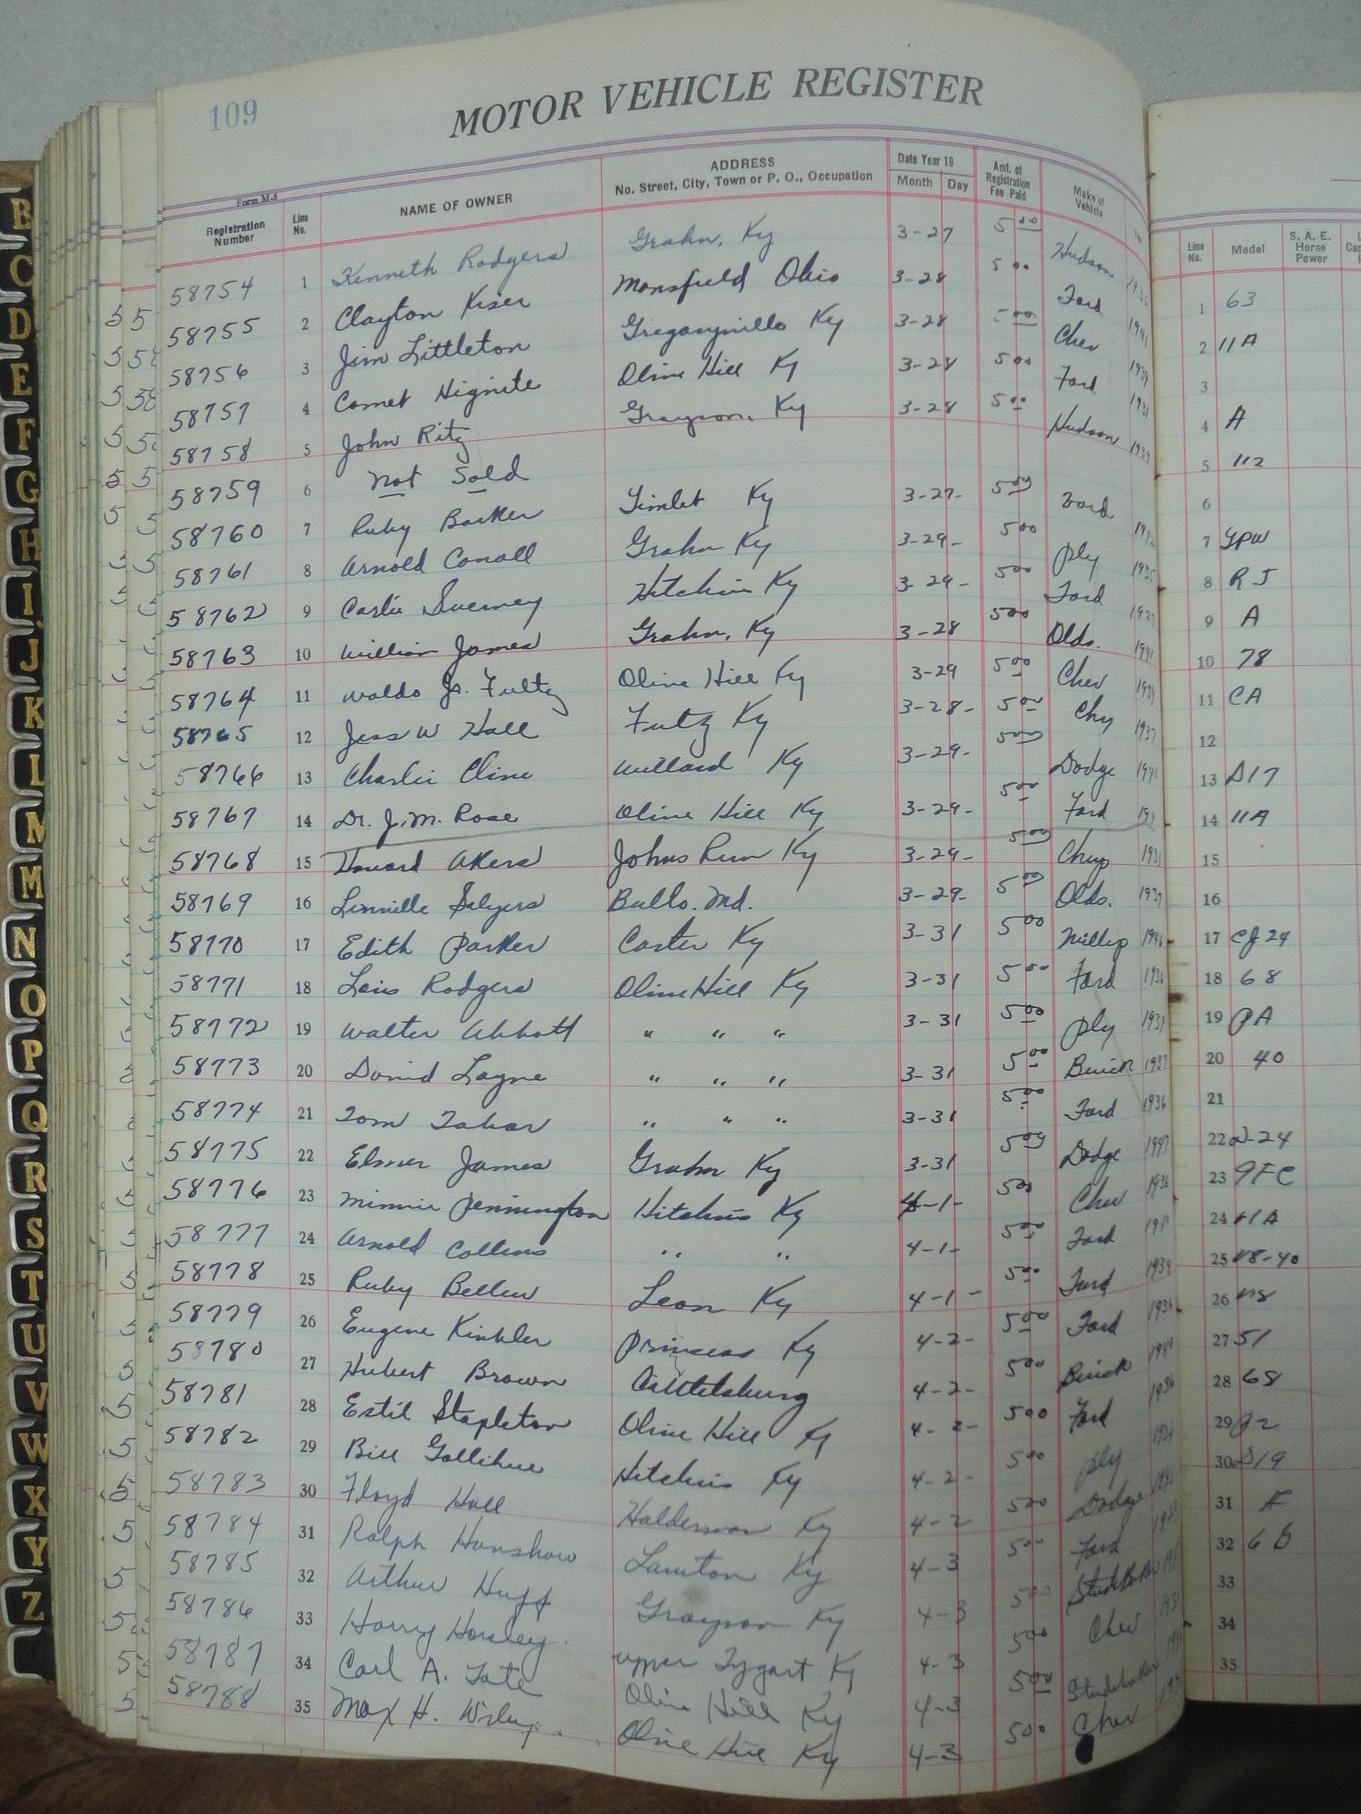 109
MOTOR VEHICLE REGISTER
Form M-5
Registration Number Line No. NAME OF OWNER ADDRESS No. Street, City, Town or P. O., Occupation Date Year 19 Month Day Amt. of Registration Fee Paid Make of Vehicle
Line No. Model S. A. E. Horse Power
58754 1 Kenneth Rodgers Grahn, Ky 3-27 5 00 Hudson 63
58755 2 Clayton Kiser Mansfield Ohio 3-28 5 00 Ford 1941 11A
58756 3 Jim Littleton Ky 3-28 5 00 Chev 1939
58757 4 Comet Hignite Olive Hill Ky 3-28 5 00 Ford 1931 A
58758 5 John Ritz Grayson, Ky 3-28 5 00 Hudson 112
58759 6 Not Sold
58760 7 Ruby Barker Ky 3-27- 5 00 Ford
58761 8 Arnold Grahn Ky 3-29- 5 00 Ply 1935 R J
58762 9 Hitchins Ky 3-29- 5 00 Ford 1929 A
58763 10 William James Grahn, Ky 3-28 5 00 Olds. 1941 78
58764 11 Waldo Jr. Fultz Olive Hill Ky 3-29 5 00 Chev CA
58765 12 Jess W Hall Fultz Ky 3-28- 5 00 Chy 1937
58766 13 Charlie Cline Willard Ky 3-29- 5 00 Dodge 1941 D17
58767 14 Dr. J.M. Rose Olive Hill Ky 3-29- 5 00 Ford 11A
58768 15 Howard Akers Johns Run Ky 3-29- 5 00 1931
58769 16 Linville Salyers Balto. Md. 3-29- 5 00 Olds. 1939
58770 17 Edith Parker Carter Ky 3-31 5 00 Willys 1946 CJ 24
58771 18 Lois Rodgers Olive Hill Ky 3-31 5 00 Ford 1936 68
58772 19 Walter Abbott " " " 3-31 5 00 Ply PA
58773 20 David Layne " " " 3-31 5 00 Buick 1937 40
58774 21 Tom Tabor " " " 3-31 5 00 Ford 1936
58775 22 Elmer James Grahn Ky 3-31 5 00 Dodge 1947 D-24
58776 23 Minnie Pennington Hitchins Ky 4-1- 5 00 Chev 1936 9FC
58777 24 Arnold Collins " " 4-1- 5 00 Ford 11A
58778 25 Ruby Bellew Leon Ky 4-1- 5 00 Ford 1939 V8-40
58779 26 Eugene Princess Ky 4-2- 5 00 Ford 1936 V8
58780 27 Hubert Brown Catlettsburg 4-2- 5 00 Buick 51
58781 28 Estil Stapleton Olive Hill Ky 4-2- 5 00 Ford 1936 68
58782 29 Bill Gollihue Hitchins Ky 4-2- 5 00 Ply P2
58783 30 Floyd Hall Haldeman Ky 4-2 5 00 Dodge D19
58784 31 Ralph Hanshaw Lawton Ky 4-3 5 00 Ford
58785 32 Arthur Huff Grayson Ky 4-3 5 00 Studebaker
58786 33 Harry Horsley Upper Tygart Ky 4-3 5 00 Chev
58787 34 Carl A. Tate Olive Hill Ky 4-3 5 00 Studebaker
58788 35 Max H. Olive Hill Ky 4-3 5 00 Chev
B
C
D
E
F
G
H
I
J
K
L
M
M
N
O
P
Q
R
S
T
U
V
W
X
Y
Z